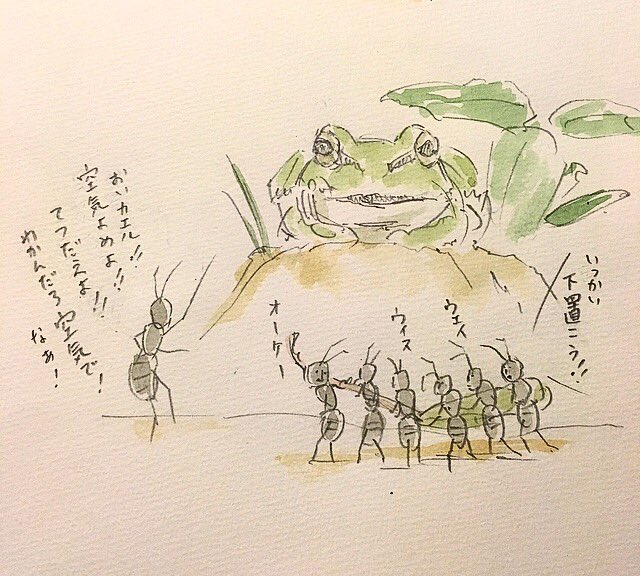 いっかい
下置こう!!
ウェイ
ウィス
オーケー
おいカエル!!
空気よめよ!!
てつだえよ!!
わかんだろ空気で!
なぁ!